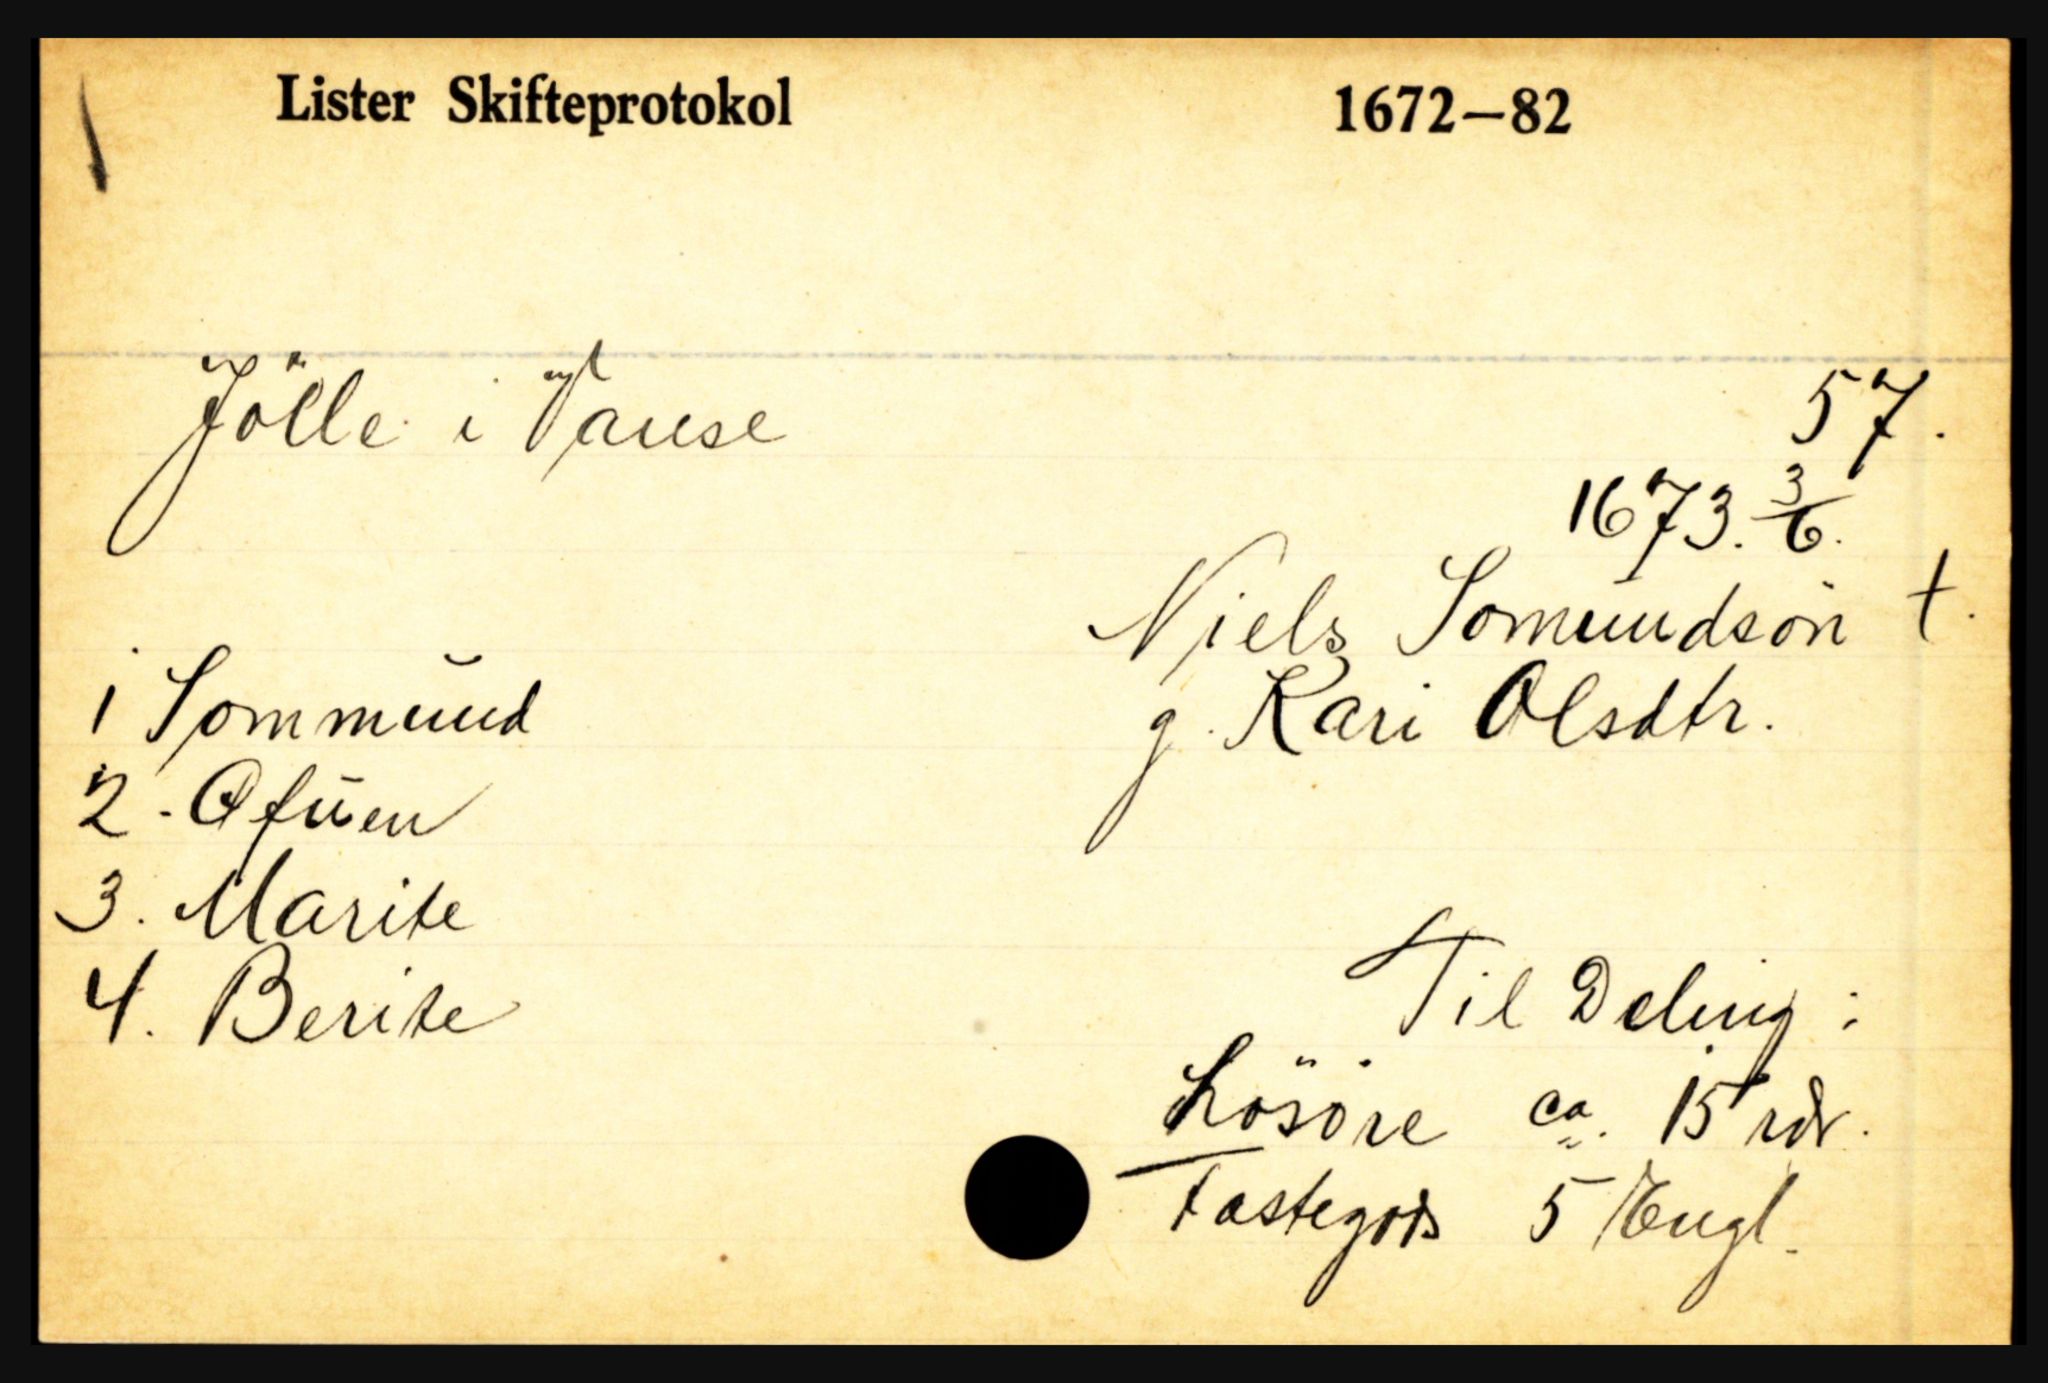 Lister Skifteprotokol 1672—82
Jölle i Vanse
57.
1673. 3/6.
Niels Somundsön †.
g. Kari Olsdtr.
1 Sommund
2. Ofuen
3. Marite
4. Berite
Til Deling:
Lösöre ca. 15 rdr.
Fastegods 5 Engl.